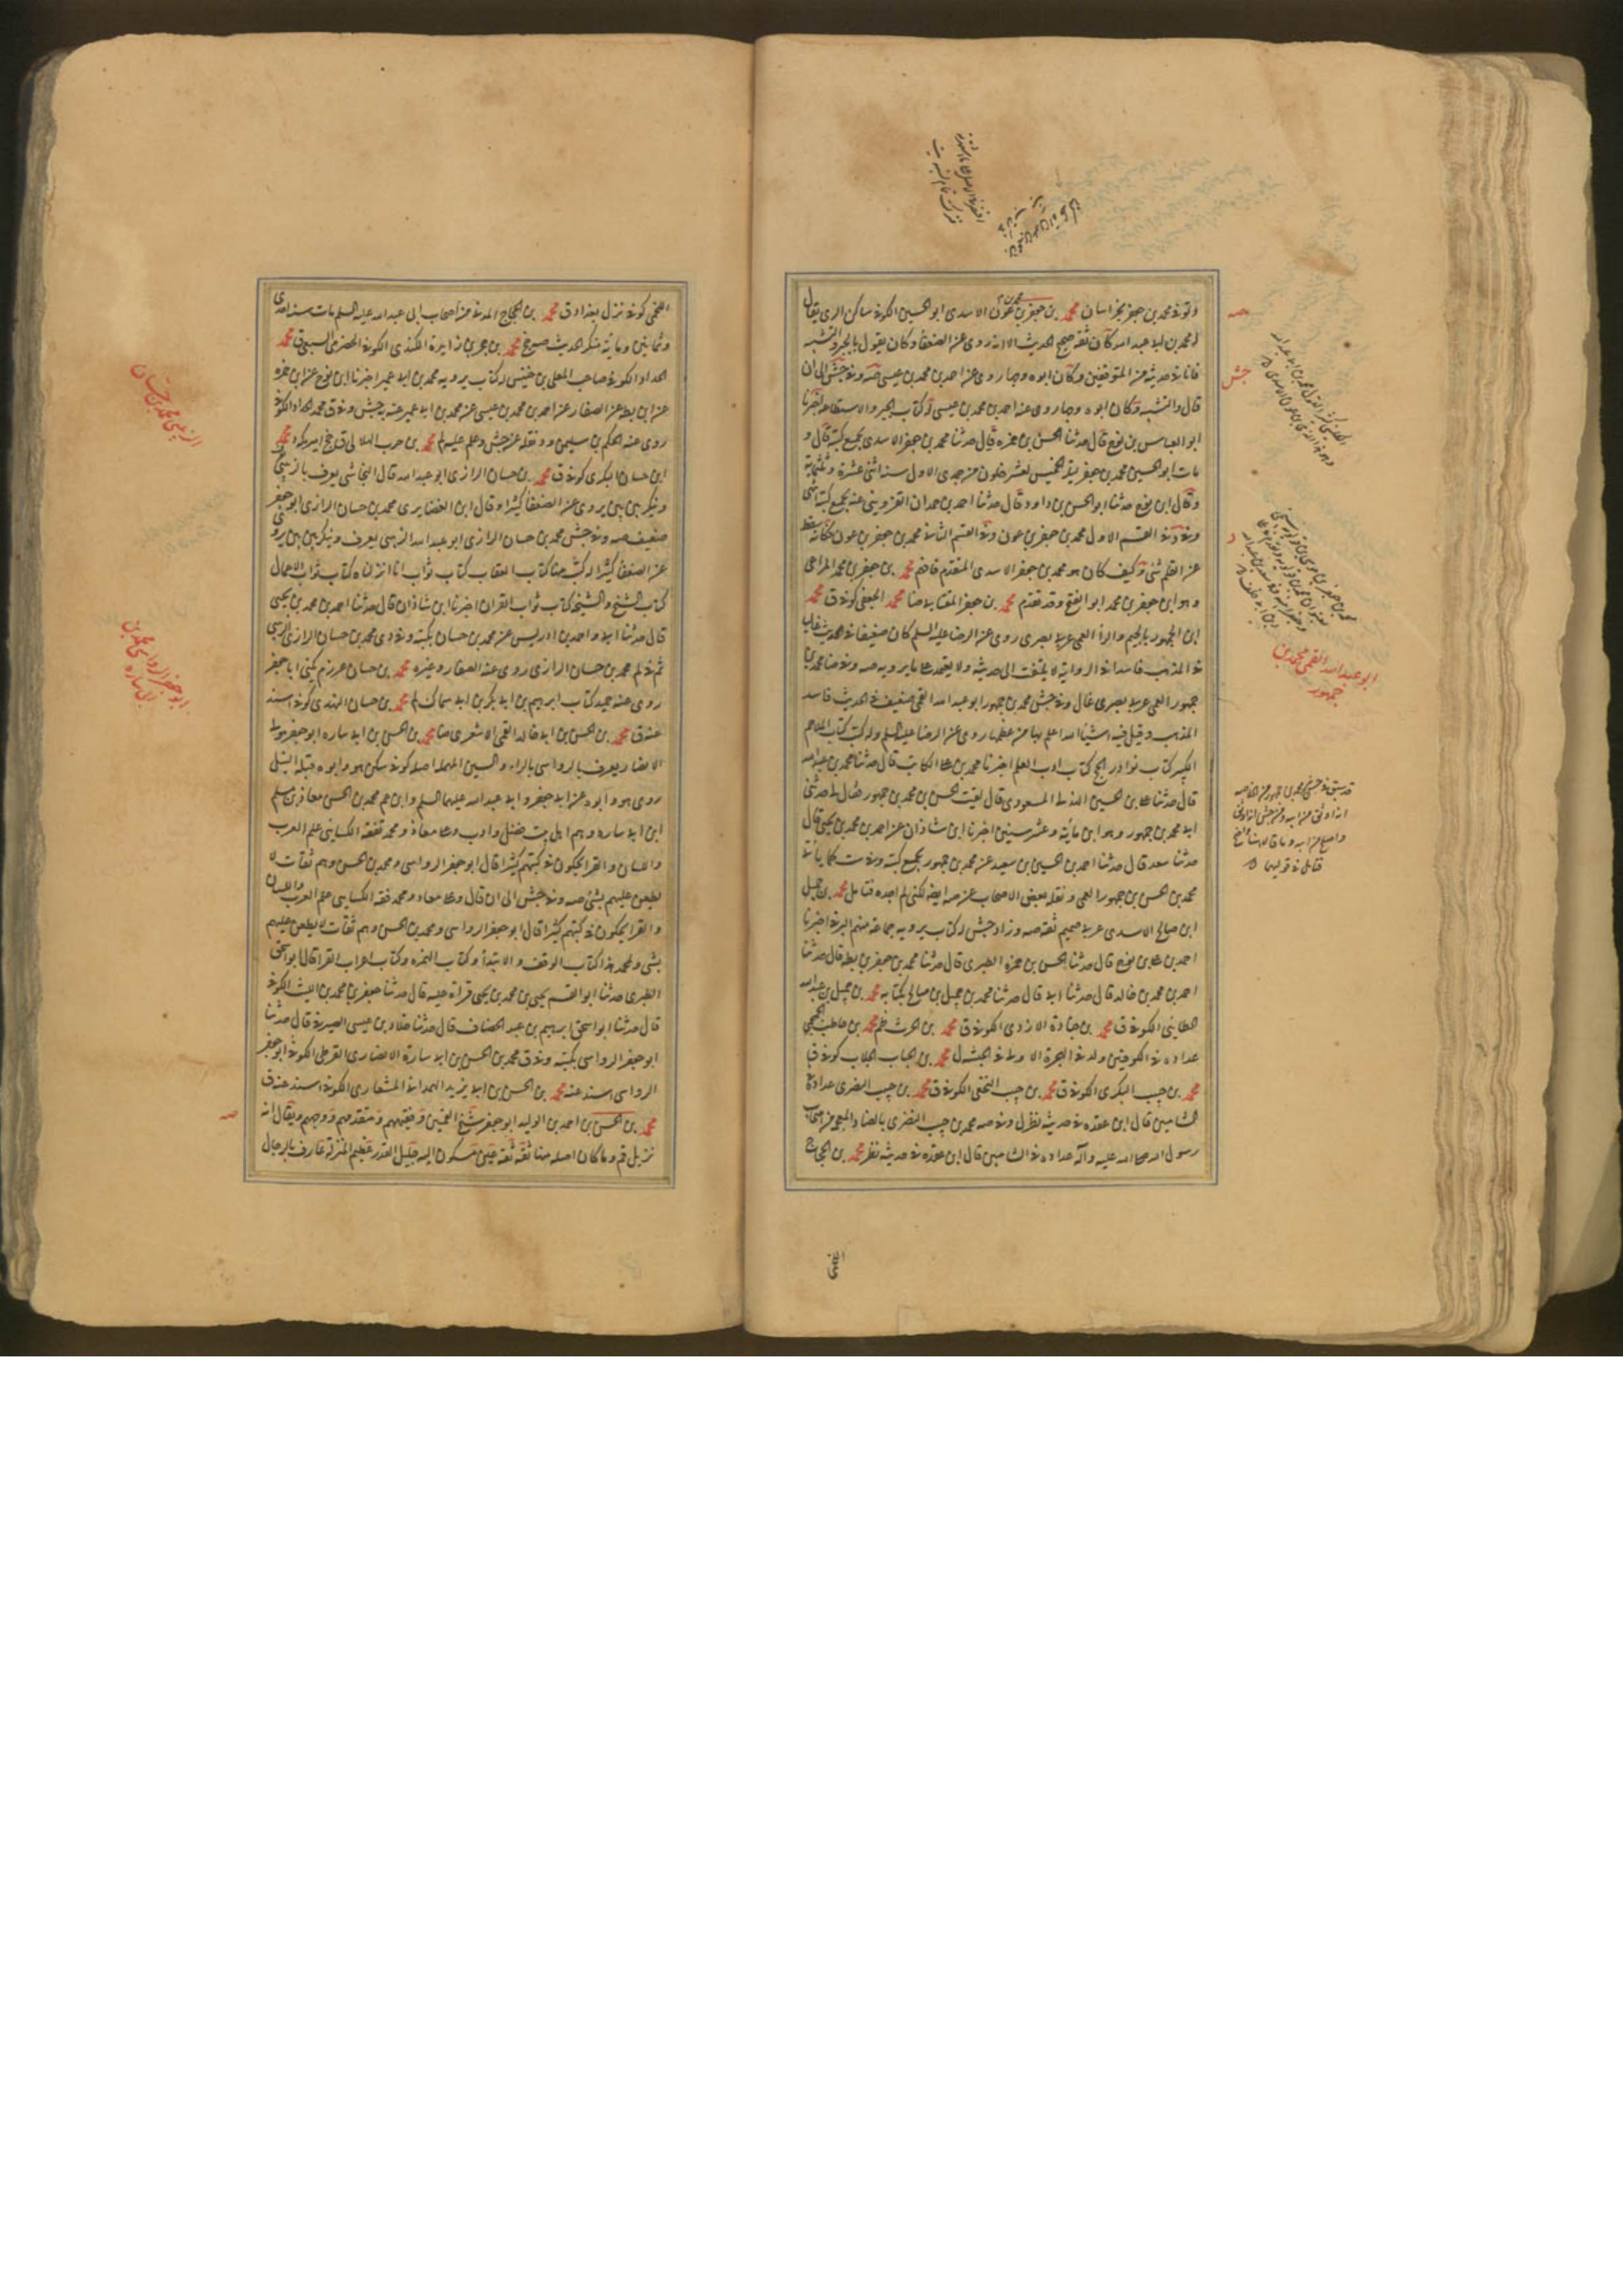 وتوفى محمد بن جعفر بخراسان محمد بن جعفر بن عون الاسدى ابو الحسين الكوفى ساكن الرى يقال
له محمد بن ابى عبد الله كان ثقة صحيح الحديث الا انه روى عن الضعفا وكان يقول بالجبر والتشبيه
فانا فى حديثه من المتوقفين وكان ابوه وجها روى عنه احمد بن محمد بن عيسى صه وفى جش الى ان
قال والتشبيه وكان ابوه وجها روى عنه احمد بن محمد بن عيسى له كتاب الجبر والاستطاعة اخبرنا
ابو العباس بن نوح قال حدثنا الحسن بن حمزه قال حدثنا محمد بن جعفر الاسدى بجميع كتبه قال و
مات ابو الحسين محمد بن جعفر ليلة الخميس لعشر خلون من جمدى الاول سنة اثنى عشرة وثلثمائة
وقال ابن نوح حدثنا ابو الحسن بن داود قال حدثنا احمد بن حمدان القزوينى عنه بجميع كتبه انتهى
وفى د فى القسم الاول محمد بن جعفر بن عون وفى القسم الثانى محمد بن جعفر بن عون فكانه سقط
عن القلم شئ وكيف كان هو محمد بن جعفر الاسدى المتقدم فافهم محمد بن جعفر بن محمد المراعى
وهو ابن جعفر بن محمد ابو الفتح وقد تقدم محمد بن جعفر ضا محمد الجعفى كوفى ق محمد
ابن الجمهور بالجيم والراء العمى عربى بصرى روى عن الرضا عليه السلم كان ضعيفا فى الحديث غاليا
فى المذهب فاسدا فى الرواية لا يلتفت الى حديثه ولا يعتمد على ما يرويه صه وفى ضا محمد بن
جمهور العمى عربى بصرى غال وفى جش محمد بن جمهور ابو عبد الله العمى ضعيف فى الحديث فاسد
المذهب وقيل فيه اشياء الله اعلم بها من عظمها روى عن الرضا عليه السلم وله كتب كتاب الملاحم
الكبير كتاب نوادر الحج كتاب ادب العلم اخبرنا محمد بن على الكاتب قال حدثنا محمد بن عبد الله
قال حدثنا على بن الحسين الهذلى المسعودى قال لقيت الحسن بن محمد بن جمهور فقال لى حدثنى
ابى محمد بن جمهور وهو ابن مائة وعشر سنين اخبرنا ابن شاذان عن احمد بن محمد بن يحيى قال
حدثنا سعد قال حدثنا احمد بن الحسين بن سعيد عن محمد بن جمهور بجميع كتبه وفى ست كما ياتى
محمد بن الحسن بن جمهور العمى ونقله بعض الاصحاب عن صه ايضا لكنى لم اجده فتامل محمد بن جميل
ابن صالح الاسدى عربى صميم ثقة صه وزاد جش له كتاب يرويه جماعة منهم البرقى اخبرنا
احمد بن على بن نوح قال حدثنا الحسن بن حمزه الطبرى قال حدثنا محمد بن جعفر بن بطه قال حدثنا
احمد بن محمد بن خالد قال حدثنا ابى قال حدثنا محمد بن جميل بن صالح بكتابه محمد بن جميل بن عبد الله
الطائى الكوفى ق محمد بن جنادة الازدى الكوفى ق محمد بن الحرث ظم محمد بن حاطب الجمحى
عداده فى الكوفيين ولد فى الهجرة الاولى فى الحبشة ل محمد بن الحباب الجلاب كوفى ق
محمد بن حبيب البكرى الكوفى ق محمد بن حبيب النخعى الكوفى ق محمد بن حبيب النضرى عداده فى
الشاميين قال ابن عقده فى حديثه نظر ل وفى صه محمد بن حبيب النضرى بالضاد المعجمه من اصحاب
رسول الله صلى الله عليه وآله عداده فى الشاميين قال ابن عقده فى حديثه نظر محمد بن الحجاج
صه
جش
ابو عبد الله العمى محمد بن
جمهور
قائل فى قوليهما
اللخمى
اللخمى كوفى نزل بغداد ق محمد بن الحجاج المدنى من اصحاب ابى عبد الله عليه السلم مات سنة احدى
وثمانين ومائة منكر الحديث محمد بن حجر بن زائدة الكندى الكوفى الحضرمى السبيعى ق محمد
الحداد الكوفى صاحب المعلى بن خنيس له كتاب يرويه محمد بن ابى عمير اخبرنا ابن نوح عن ابن حمزه
عن ابن بطه عن الصفار عن احمد بن محمد بن عيسى عن محمد بن ابى عمير عنه به جش وفى ق محمد الحداد الكوفى
روى عنه الحكم بن سليمن محمد بن حرب الهلالى ق محمد
ابن حسان البكرى كوفى ق محمد بن حسان الرازى ابو عبد الله قال النجاشى يعرف بالزينبى
وينكر بين بين يروى عن الضعفا كثيرا وقال ابن الغضايرى محمد بن حسان الرازى ابو جعفر
ضعيف صه وفى جش محمد بن حسان الرازى ابو عبد الله الزينبى يعرف وينكر بين بين يروى
عن الضعفا كثيرا له كتب منها كتاب العقاب كتاب ثواب انا انزلناه كتاب ثواب الاعمال
كتاب الشيخ والشيخة كتاب ثواب القران اخبرنا ابن شاذان قال حدثنا احمد بن محمد بن يحيى
قال حدثنا ابى واحمد بن ادريس عن محمد بن حسان بكتبه وفى دى محمد بن حسان الرازى الزينبى
ثم فى لم محمد بن حسان الرازى روى عنه الصفار وغيره محمد بن حسان عرزم يكنى ابا جعفر
روى عنه حميد كتاب ابرهيم بن ابى بكر بن ابى سماك لم محمد بن حسان النهدى كوفى اسند
عنه ق محمد بن الحسن بن ابى خالد القمى الاشعرى ضا محمد بن الحسن بن ابى ساره ابو جعفر مولى
الانصار يعرف بالرواسى بالراء والسين المهملة اصله كوفى سكن هو وابوه قبله النيل
روى هو وابوه عن ابى جعفر وابى عبد الله عليهما السلم وابن عم محمد بن الحسن معاذ بن مسلم
ابن ابى ساره وهم اهل بيت فضل وادب وعلى معاذ ومحمد تفقه الكسائى علم العرب
والكسائى والفراء يحكون فى كتبهم كثيرا قال ابو جعفر الرواسى ومحمد بن الحسن وهم ثقات لا
يطعن عليهم بشئ صه وفى جش الى ان قال وعلى معاذ ومحمد فقه الكسائى علم العرب والكسائى
والفراء يحكون فى كتبهم كثيرا قال ابو جعفر الرواسى ومحمد بن الحسن وهم ثقات لا يطعن عليهم
بشئ ولمحمد هذا كتاب الوقف والابتدا وكتاب الهمزه وكتاب اعراب القران قال ابو اسحق
الطبرى حدثنا ابو القسم يحيى بن محمد بن يحيى قراة عليه قال حدثنا جعفر بن محمد بن الليث الكوفى
قال حدثنا ابو اسحق ابرهيم بن عبد الخصاف قال حدثنا خلاد بن عيسى الصيرفى قال حدثنا
ابو جعفر الرواسى بكتبه وفى ق محمد بن الحسن بن ابى سارة الانصارى القرظى الكوفى ابو جعفر
الرواسى اسند عنه محمد بن الحسن بن ابى يزيد الهمدانى المشعارى الكوفى اسند عنه ق
محمد بن الحسن بن احمد بن الوليد ابو جعفر شيخ القميين وفقيههم ومتقدمهم ووجههم ويقال انه
نزيل قم وما كان اصله منها ثقة ثقة عين مسكون اليه جليل القدر عظيم المنزلة عارف بالرجال
الزينبى محمد بن حسان
ابو جعفر الرواسى محمد بن
ابى ساره
صه